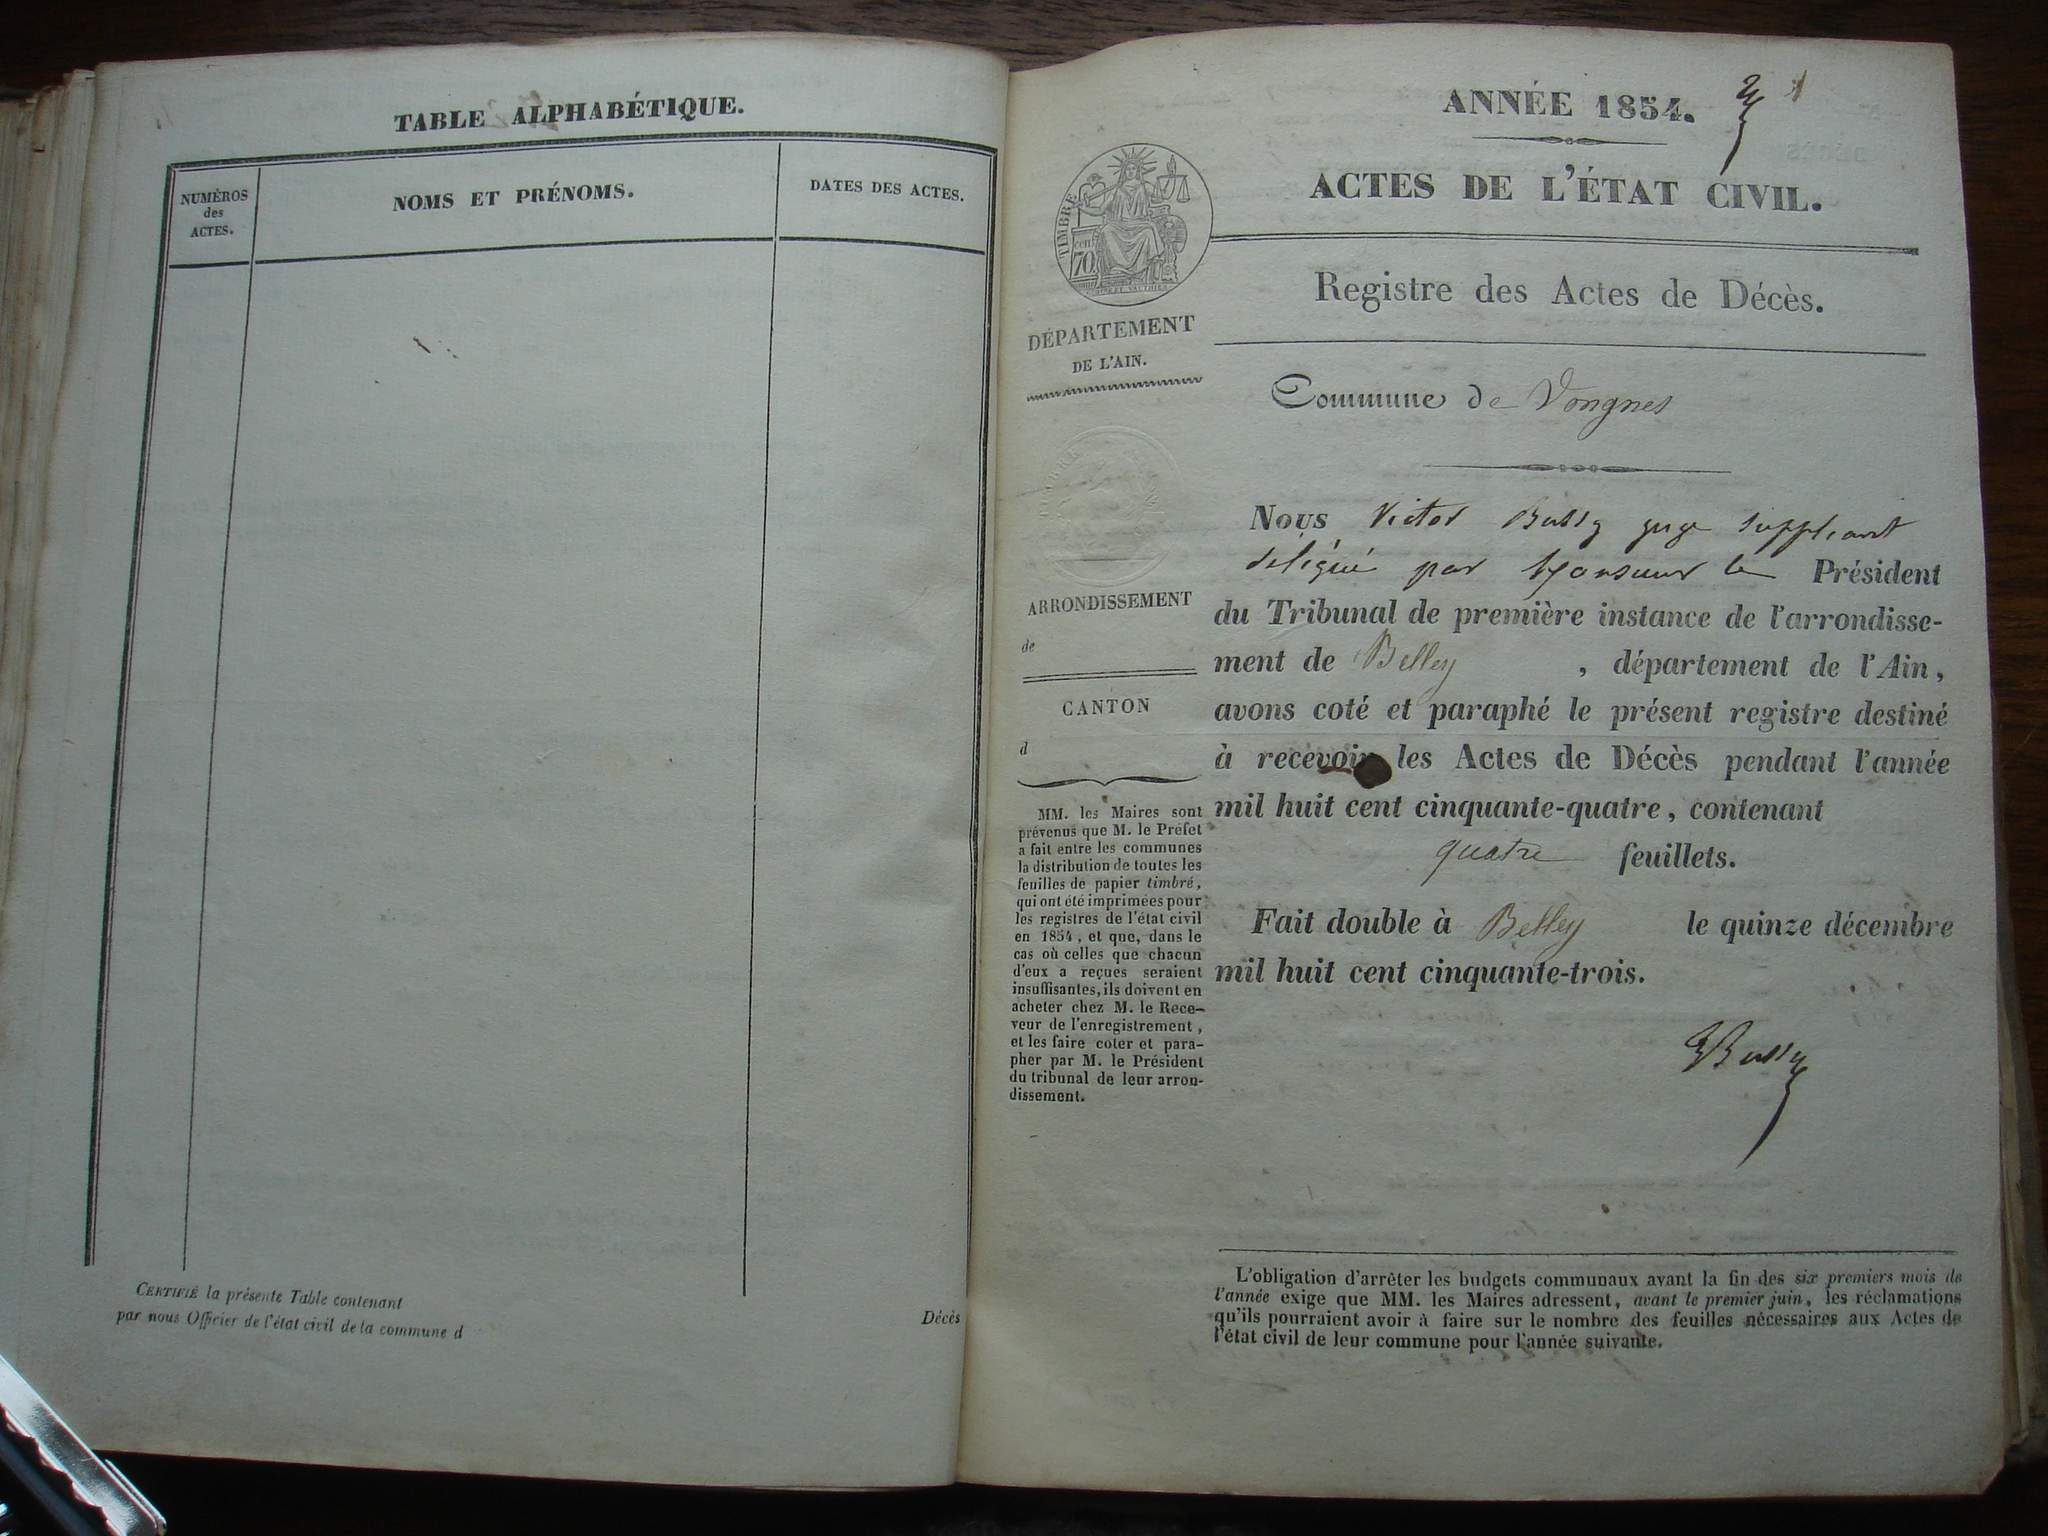 TABLE ALPHABÉTIQUE.
NUMÉROS
des
ACTES.
NOMS ET PRÉNOMS.
DATES DES ACTES.
CERTIFIÉ la présente Table contenant
par nous Officier de l'état civil de la commune d
Décès
ANNÉE 1854.
1
ACTES DE L'ÉTAT CIVIL.
TIMBRE
cent
70
Registre des Actes de Décès.
DÉPARTEMENT
DE L'AIN.
Commune de Vongnes
ARRONDISSEMENT
de
CANTON
d
MM. les Maires sont
prévenus que M. le Préfet
a fait entre les communes
la distribution de toutes les
feuilles de papier timbré,
qui ont été imprimées pour
les registres de l'état civil
en 1854, et que, dans le
cas où celles que chacun
d'eux a reçues seraient
insuffisantes, ils doivent en
acheter chez M. le Rece-
veur de l'enregistrement,
et les faire coter et para-
pher par M. le Président
du tribunal de leur arron-
dissement.
Nous Victor Bussy juge suppléant
délégué par Monsieur le Président
du Tribunal de première instance de l'arrondisse-
ment de Belley, département de l'Ain,
avons coté et paraphé le présent registre destiné
à recevoir les Actes de Décès pendant l'année
mil huit cent cinquante-quatre, contenant
quatre feuillets.
Fait double à Belley le quinze décembre
mil huit cent cinquante-trois.
VBussy
L'obligation d'arrêter les budgets communaux avant la fin des six premiers mois de
l'année exige que MM. les Maires adressent, avant le premier juin, les réclamations
qu'ils pourraient avoir à faire sur le nombre des feuilles nécessaires aux Actes de
l'état civil de leur commune pour l'année suivante.